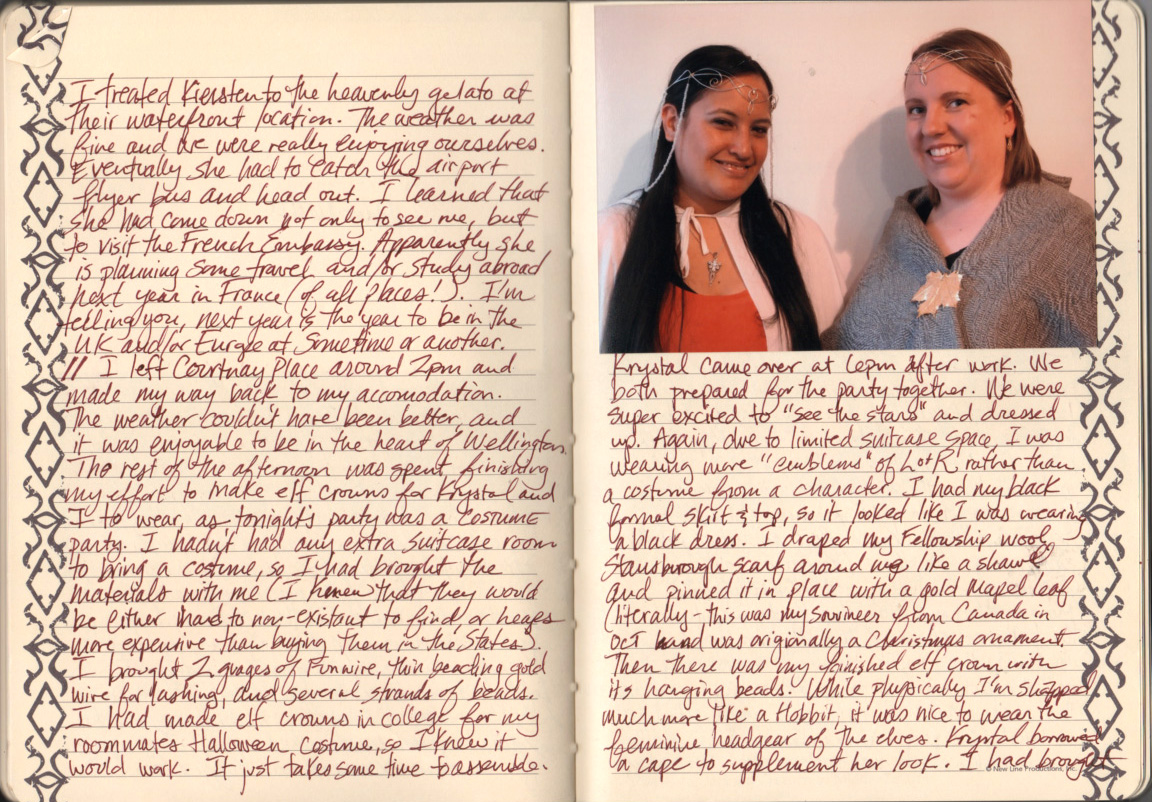 I treated Kiersten to the heavenly gelato at
their waterfront location. The weather was
fine and we were really enjoying ourselves.
Eventually she had to catch the airport
flyer bus and head out. I learned that
she had come down not only to see me, but
to visit the French Embassy. Apparently she
is planning some travel and/or study abroad
next year in France (of all places!). I'm
telling you, next year is the year to be in the
UK and/or Europe at sometime or another.
// I left Courtnay Place around 2pm and
made my way back to my accomodation.
The weather couldn't have been better, and
it was enjoyable to be in the heart of Wellington.
The rest of the afternoon was spent finishing
my effort to make elf crowns for Krystal and
I to wear, as tonight's party was a COSTUME
party. I hadn't had any extra suitcase room
to bring a costume, so I had brought the
materials with me (I knew that they would
be either hard to non-existant to find, or heaps
more expensive than buying them in the States).
I brought 2 guages of Funwire, thin beading gold
wire for lashing, and several strands of beads.
I had made elf crowns in college for my
roommates Halloween costume, so I knew it
would work. It just takes some time to assemble.
Krystal came over at 6pm after work. We
both prepared for the party together. We were
super excited to "see the stars" and dressed
up. Again, due to limited suitcase space, I was
wearing more "emblems" of LotR rather than
a costume from a character. I had my black
formal skirt & top, so it looked like I was wearing
a black dress. I draped my Fellowship wool
Stansborough scarf around me like a shawl
and pinned it in place with a gold Mapel leaf
(literally - this was my souvineer from Canada in
OCT and was originally a Christmas ornament.
Then there was my finished elf crown with
its hanging beads. While physically I'm shapped
much more like a Hobbit, it was nice to wear the
feminine headgear of the elves. Krystal borrowed
a cape to supplement her look. I had brought
© New Line Productions, Inc.